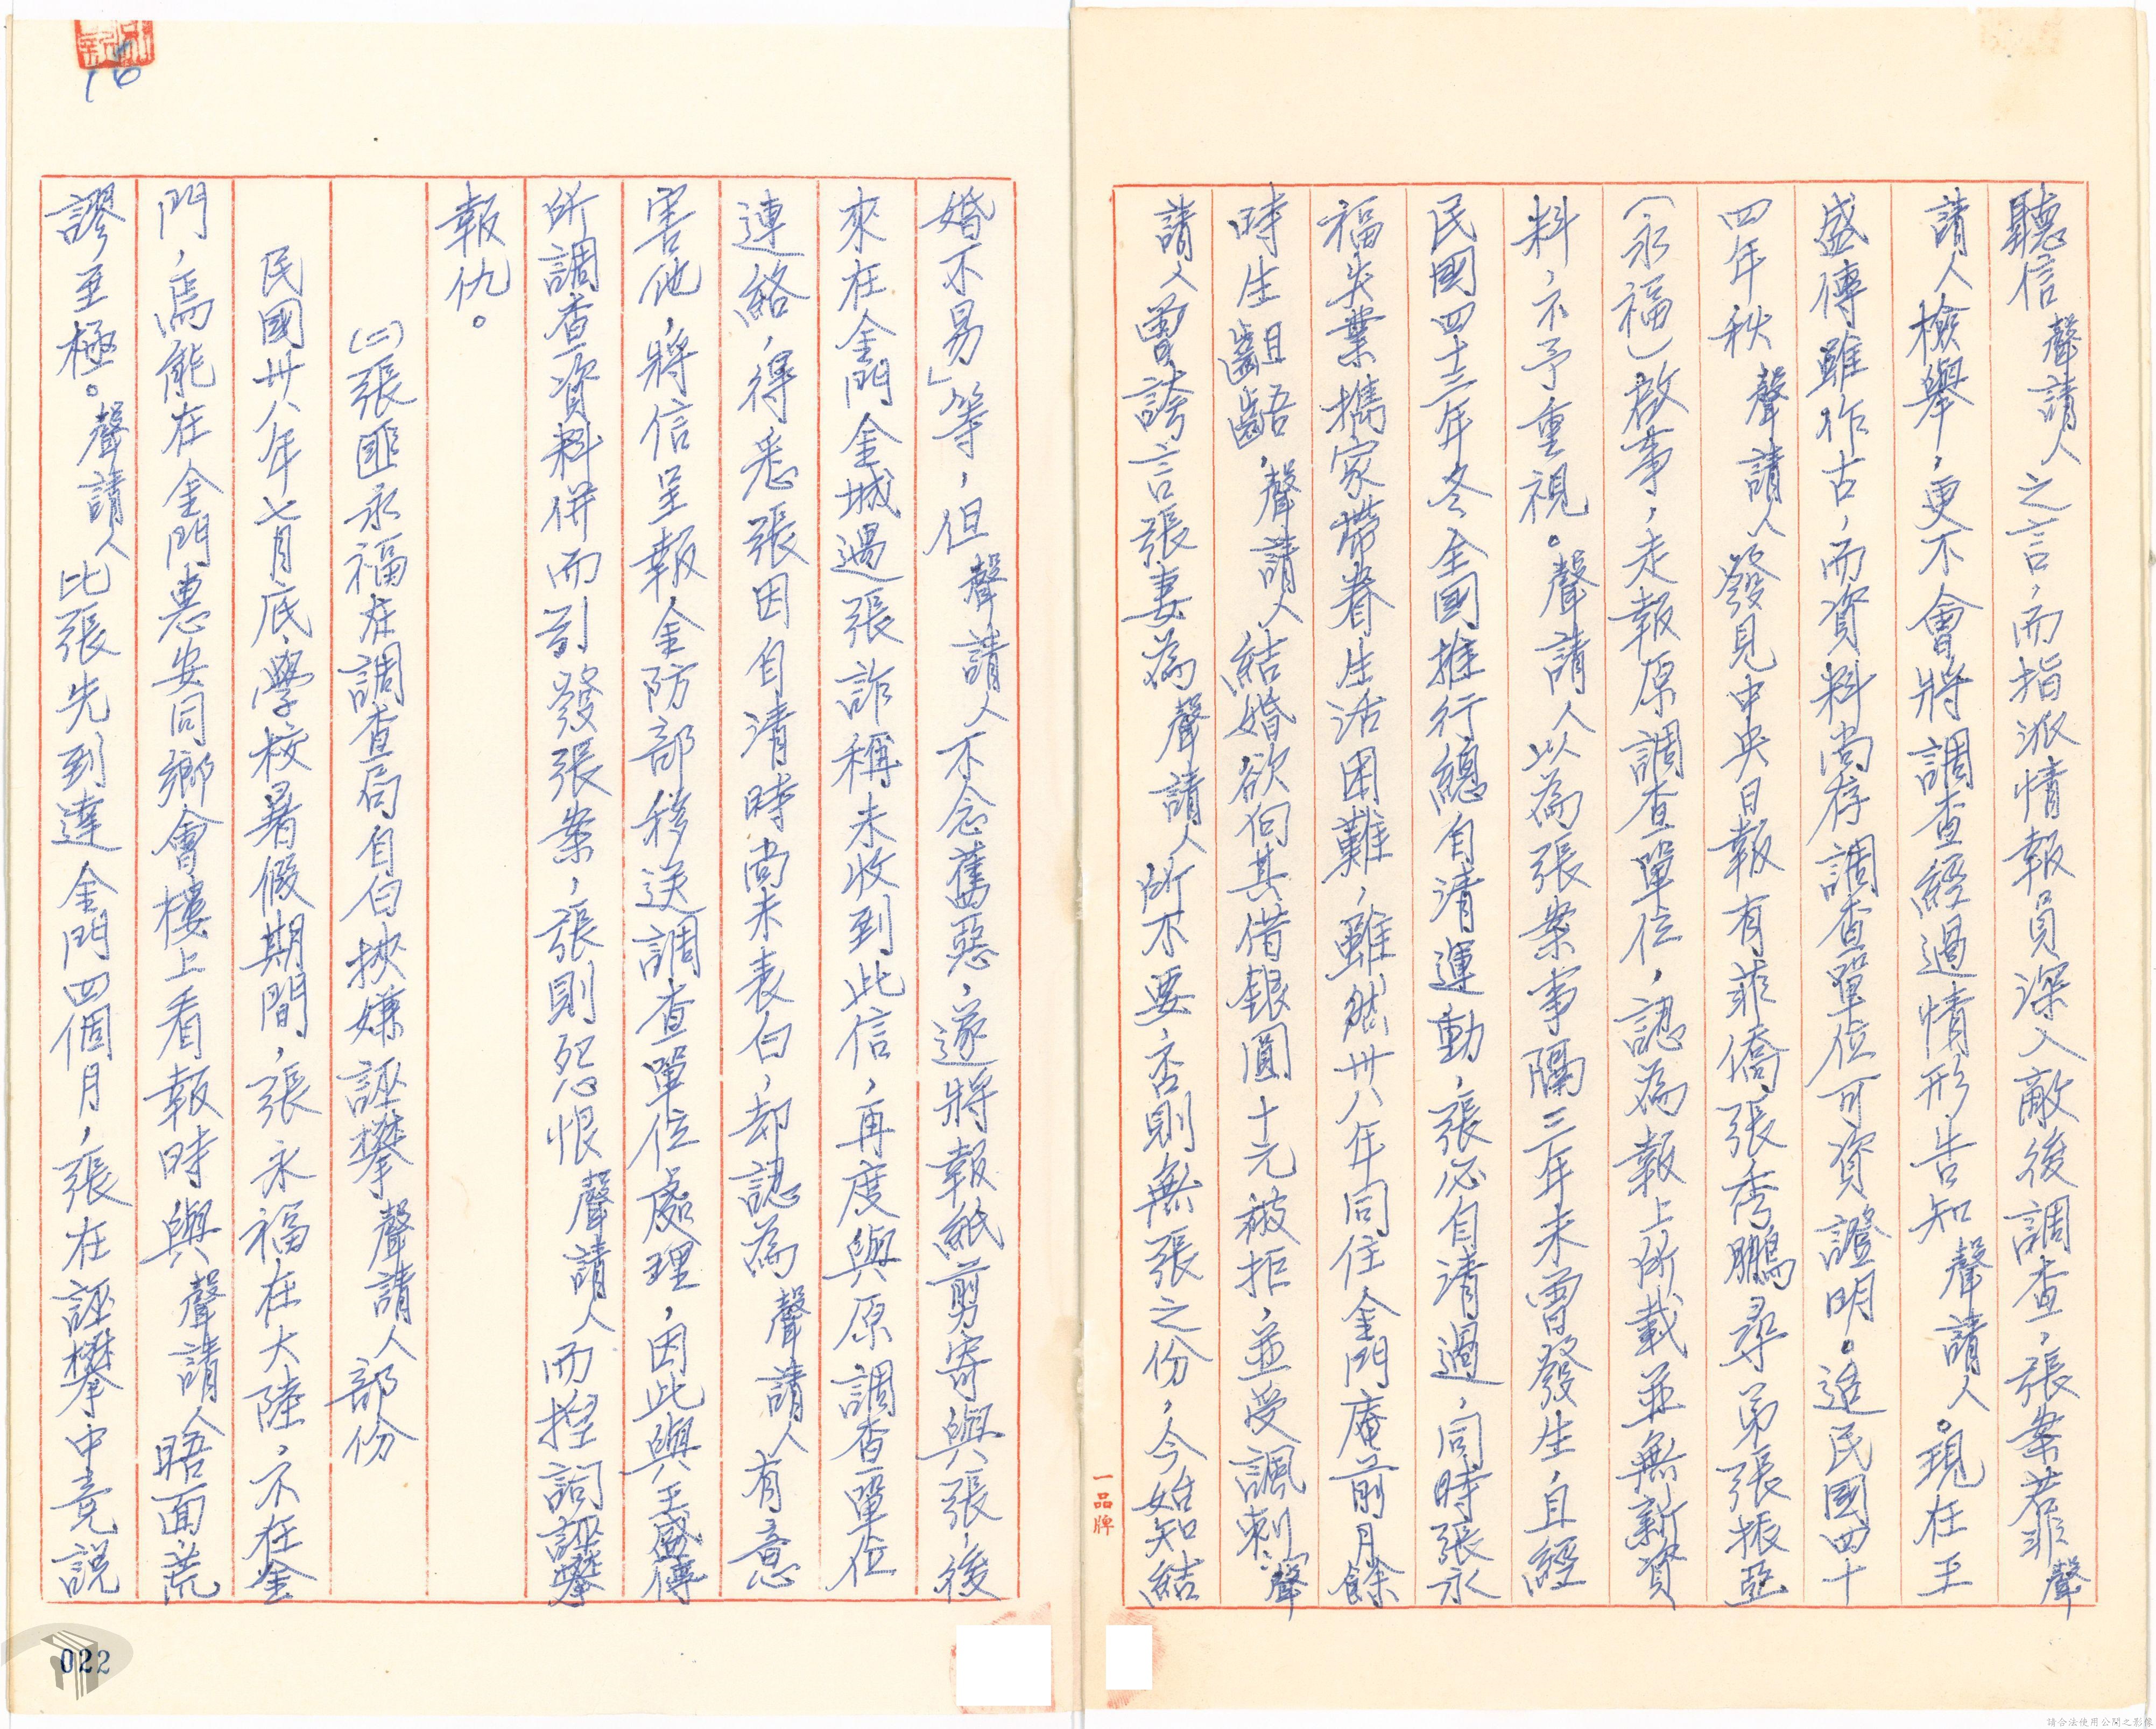 聽信聲請人之言，而指派情報員深入敵後調查，張案若非聲
請人檢舉，更不會將調查經過情形告知聲請人。現在王
盛傳雖作古，而資料尚存調查單位可資證明。迨民國四十
四年秋聲請人發見中央日報有菲僑張秀鵬尋弟張振亞
(永福)啟事，走報原調查單位，認為報上所載並無新資
料，不予重視。聲請人以為張案事隔三年未曾發生，且經
民國四十三年冬全國推行總自清運動，張必自清過，同時張永
福失業攜家帶眷生活困難，雖然卅八年同住金門庵前月餘
時生齟齬，聲請人結婚欲向其借銀圓十元被拒，並受諷刺：聲
請人曾誇言張妻為聲請人所不要，否則無張之份，今始知結
一品牌
婚不易」等，但聲請人不念舊惡，遂將報紙剪寄與張，後
來在金門金城遇張詐稱未收到此信，再度與原調查單位
連絡，得悉張因自清時尚未表白，却認為聲請人有意
害他，將信呈報，金防部移送調查單位處理，因此與王盛傳
所調查資料併而訂發張案，張則怨恨聲請人而捏詞誣攀
報仇。
(二)張匪永福在調查局自白挾嫌誣攀聲請人部份
民國卅八年七月底，學校暑假期間，張永福在大陸，不在金
門，焉能在金門惠安同鄉會樓上看報時與聲請人晤面，荒
謬至極。聲請人比張先到達金門四個月，張在誣攀中竟說
16
022
請合法使用公開之影像